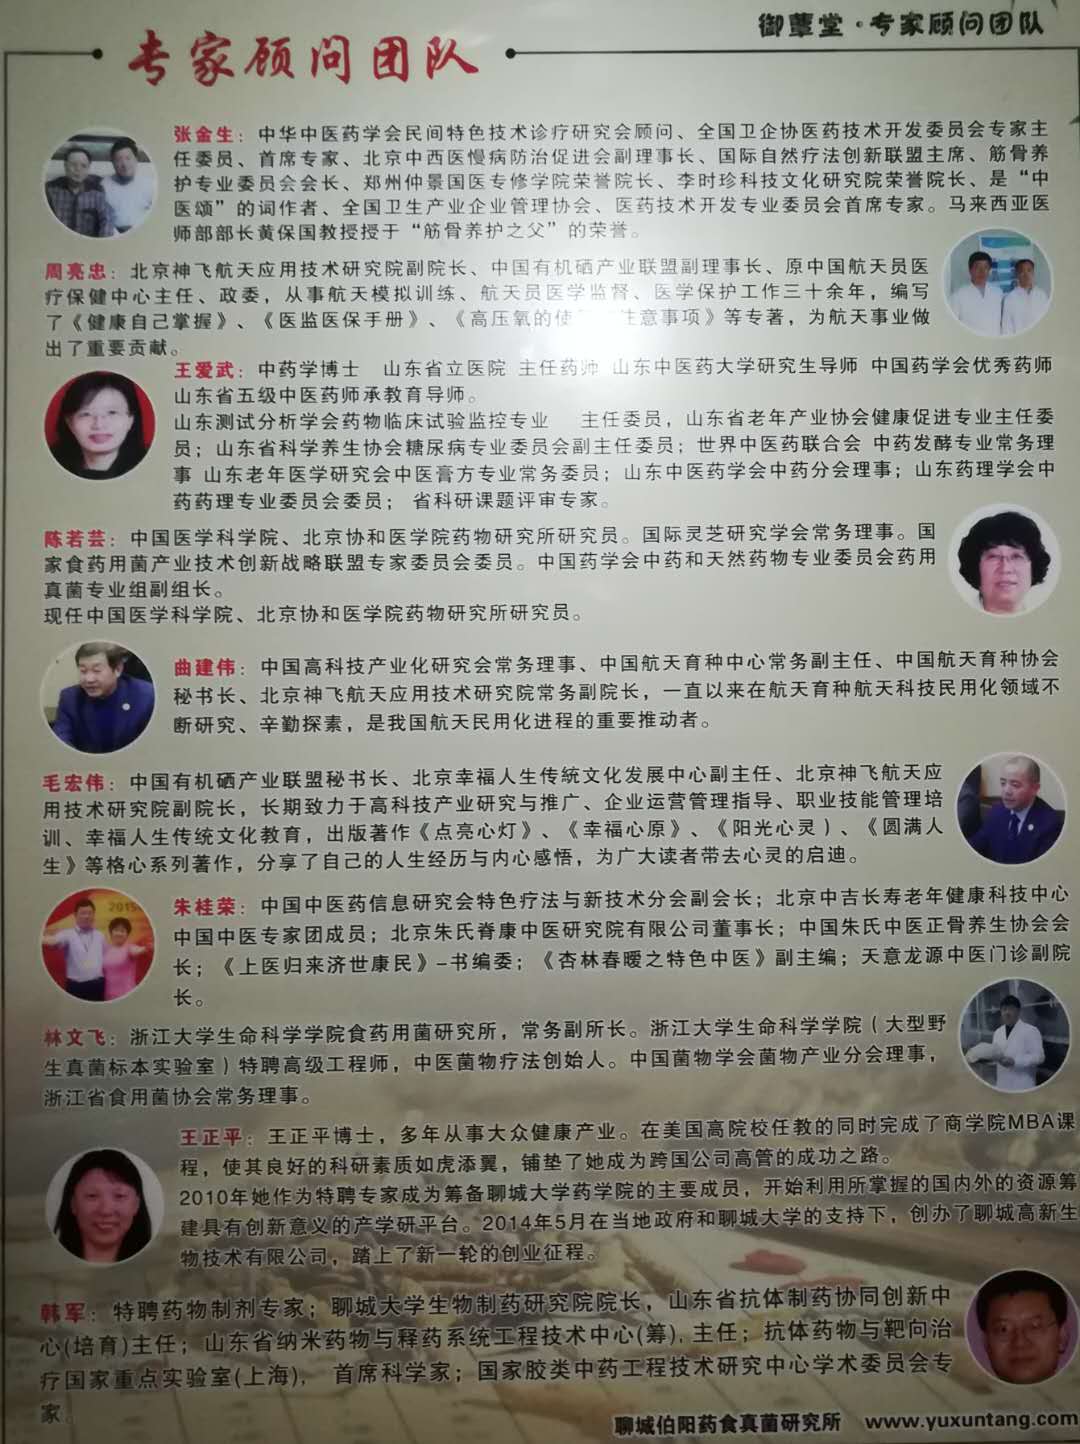 御蕈堂·专家顾问团队
专家顾问团队
张金生：中华中医药学会民间特色技术诊疗研究会顾问、全国卫企协医药技术开发委员会专家主
任委员、首席专家、北京中西医慢病防治促进会副理事长、国际自然疗法创新联盟主席、筋骨养
护专业委员会会长、郑州仲景国医专修学院荣誉院长、李时珍科技文化研究院荣誉院长、是“中
医颂”的词作者、全国卫生产业企业管理协会、医药技术开发专业委员会首席专家。马来西亚医
师部部长黄保国教授授于“筋骨养护之父”的荣誉。
周亮忠：北京神飞航天应用技术研究院副院长、中国有机硒产业联盟副理事长、原中国航天员医
疗保健中心主任、政委，从事航天模拟训练、航天员医学监督、医学保护工作三十余年，编写
了《健康自己掌握》、《医监医保手册》、《高压氧的使 注意事项》等专著，为航天事业做
出了重要贡献。
王爱武：中药学博士 山东省立医院 主任药师 山东中医药大学研究生导师 中国药学会优秀药师
山东省五级中医药师承教育导师。
山东测试分析学会药物临床试验监控专业 主任委员，山东省老年产业协会健康促进专业主任委
员；山东省科学养生协会糖尿病专业委员会副主任委员；世界中医药联合会 中药发酵专业常务理
事 山东老年医学研究会中医膏方专业常务委员；山东中医药学会中药分会理事；山东药理学会中
药药理专业委员会委员； 省科研课题评审专家。
陈若芸：中国医学科学院、北京协和医学院药物研究所研究员。国际灵芝研究学会常务理事。国
家食药用菌产业技术创新战略联盟专家委员会委员。中国药学会中药和天然药物专业委员会药用
真菌专业组副组长。
现任中国医学科学院、北京协和医学院药物研究所研究员。
曲建伟：中国高科技产业化研究会常务理事、中国航天育种中心常务副主任、中国航天育种协会
秘书长、北京神飞航天应用技术研究院常务副院长，一直以来在航天育种航天科技民用化领域不
断研究、辛勤探素，是我国航天民用化进程的重要推动者。
毛宏伟：中国有机硒产业联盟秘书长、北京幸福人生传统文化发展中心副主任、北京神飞航天应
用技术研究院副院长，长期致力于高科技产业研究与推广、企业运营管理指导、职业技能管理培
训、幸福人生传统文化教育，出版著作《点亮心灯》、《幸福心原》、《阳光心灵）、《圆满人
生》等格心系列著作，分享了自己的人生经历与内心感悟，为广大读者带去心灵的启迪。
2015
朱桂荣：中国中医药信息研究会特色疗法与新技术分会副会长；北京中吉长寿老年健康科技中心
中国中医专家团成员；北京朱氏脊康中医研究院有限公司董事长；中国朱氏中医正骨养生协会会
长；《上医归来济世康民》-书编委；《杏林春暧之特色中医》副主编；天意龙源中医门诊副院
长。
林文飞：浙江大学生命科学学院食药用菌研究所，常务副所长。浙江大学生命科学学院（大型野
生真菌标本实验室）特聘高级工程师，中医菌物疗法创始人。中国菌物学会菌物产业分会理事，
浙江省食用菌协会常务理事。
王正平：王正平博士，多年从事大众健康产业。在美国高院校任教的同时完成了商学院MBA课
程，使其良好的科研素质如虎添翼，铺垫了她成为跨国公司高管的成功之路。
2010年她作为特聘专家成为筹备聊城大学药学院的主要成员，开始利用所掌握的国内外的资源筹
建具有创新意义的产学研平台。2014年5月在当地政府和聊城大学的支持下，创办了聊城高新生
物技术有限公司，踏上了新一轮的创业征程。
韩军：特聘药物制剂专家；聊城大学生物制药研究院院长，山东省抗体制药协同创新中
心(培育)主任；山东省纳米药物与释药系统工程技术中心(筹),主任；抗体药物与靶向治
疗国家重点实验室(上海), 首席科学家；国家胶类中药工程技术研究中心学术委员会专
家。
聊城伯阳药食真菌研究所 www.yuxuntang.com